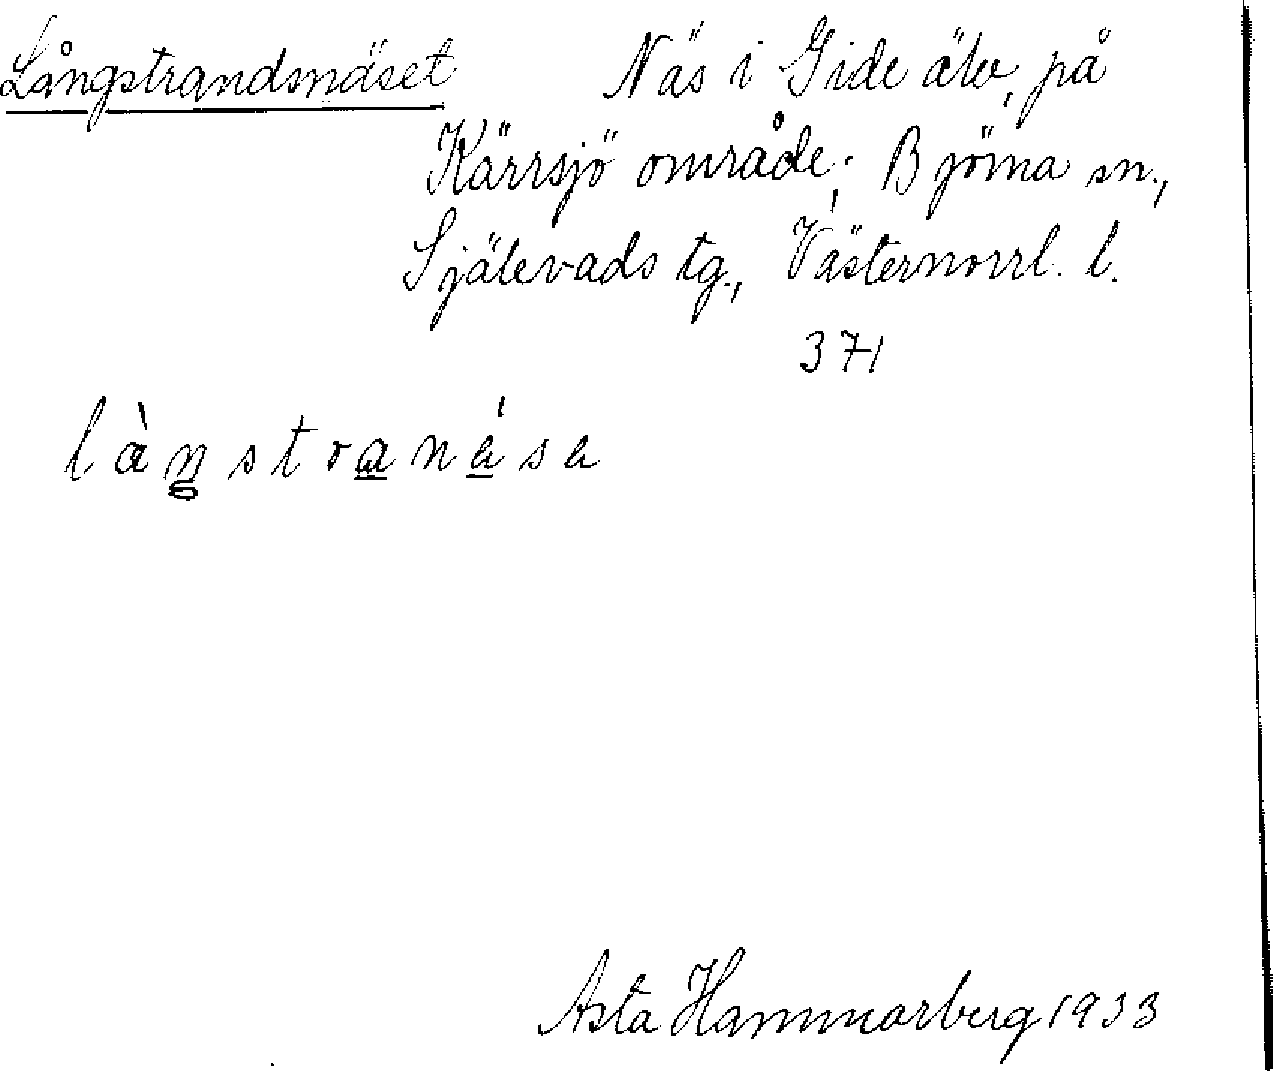 Långstrandsnäset Näs i Gide älv, på
Kärrsjö område; Björna sn.,
Själevads tg., Västernorrl. l.
371
làŋstranásа
Asta Hammarberg 1933